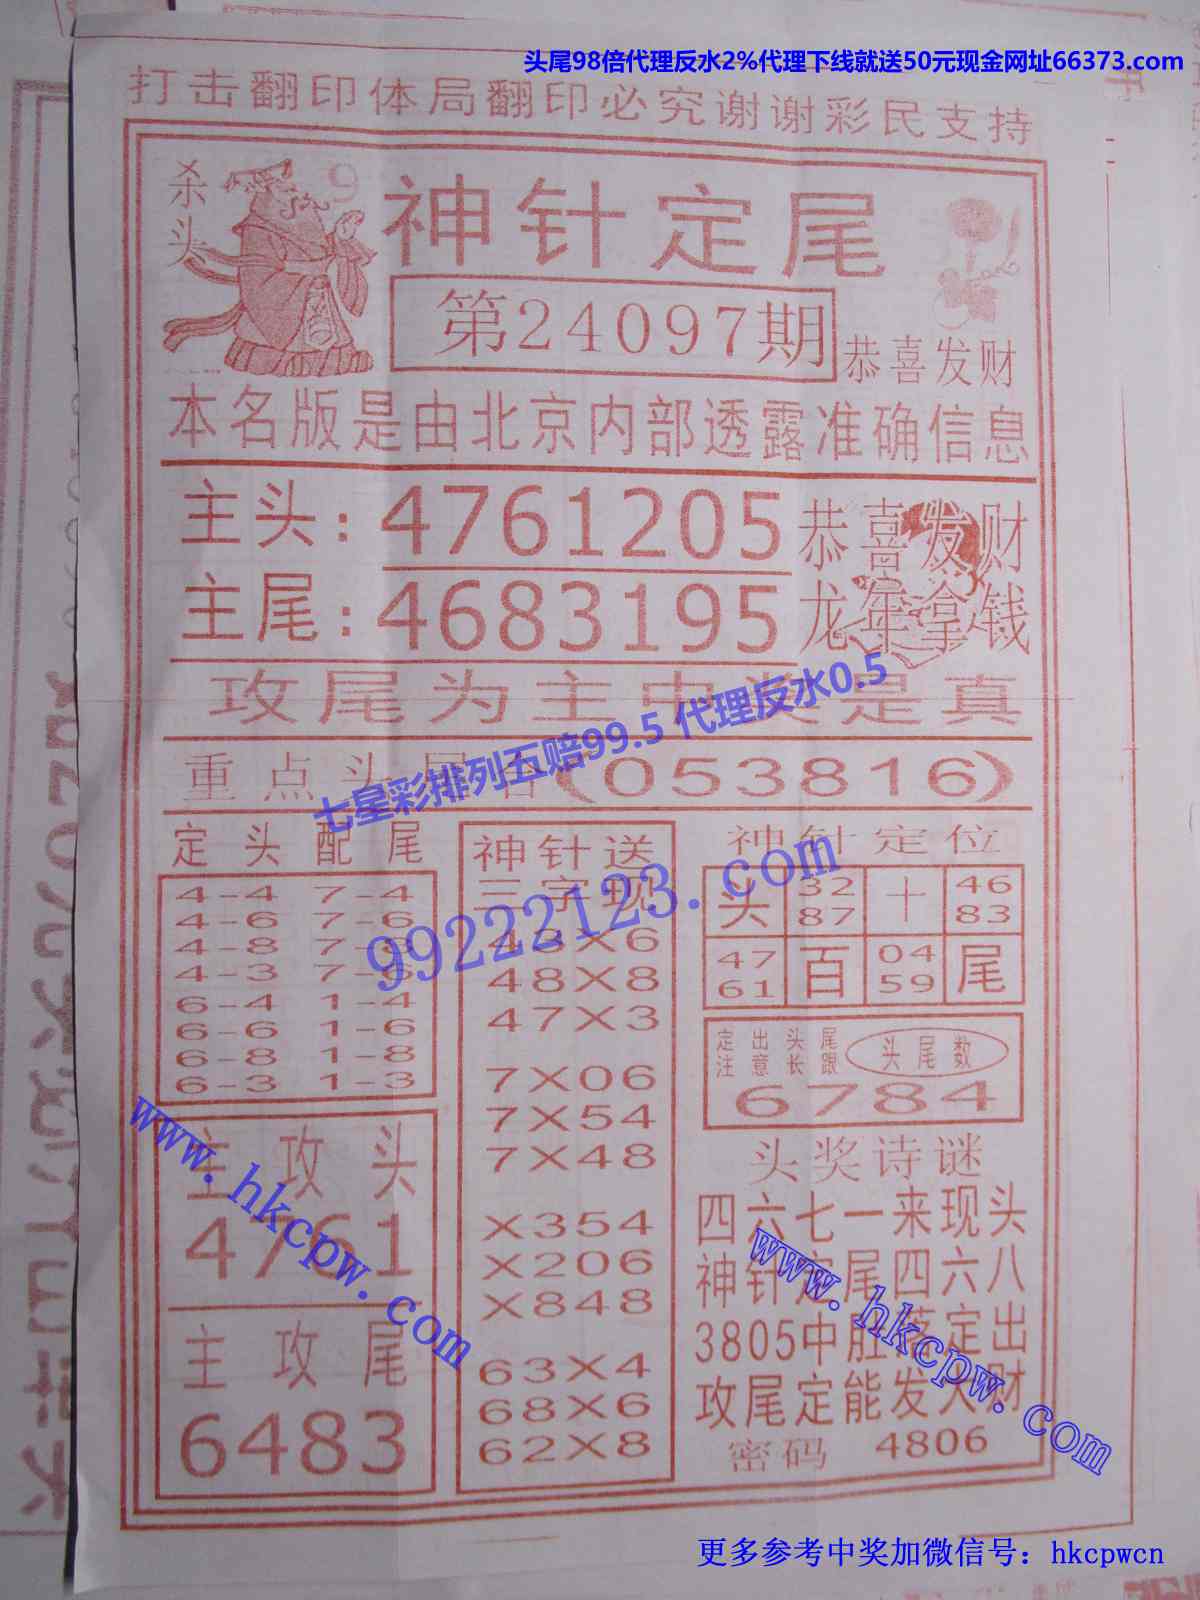 头尾98倍代理反水2%代理下线就送50元现金网址66373.com
打击翻印体局翻印必究谢谢彩民支持
杀头
9
神针定尾
第24097期
恭喜发财
本名版是由北京内部透露准确信息
主头:4761205
恭喜发财
主尾:4683195
龙年拿钱
攻尾为主中奖是真
七星彩排列五赔99.5 代理反水0.5
重点头尾合(053816)
定头配尾
4-4 7-4
4-6 7-6
4-8 7-8
4-3 7-6
6-4 1-4
6-6 1-6
6-8 1-8
6-3 1-3
99222123.com
神针送
三字现
43X6
48X8
47X3
7X06
7X54
7X48
X354
X206
X848
63X4
68X6
62X8
神针定位
头 32 十 46
87 83
47 百 04 尾
61 59
定出头尾
注意长跟
头尾数
6784
主攻头
4761
主攻尾
6483
头奖诗谜
四六七一来现头
神针定尾四六八
3805中肚落定出
攻尾定能发大财
密码 4806
www.hkcpw.com
www.hkcpw.com
更多参考中奖加微信号：hkcpwcn